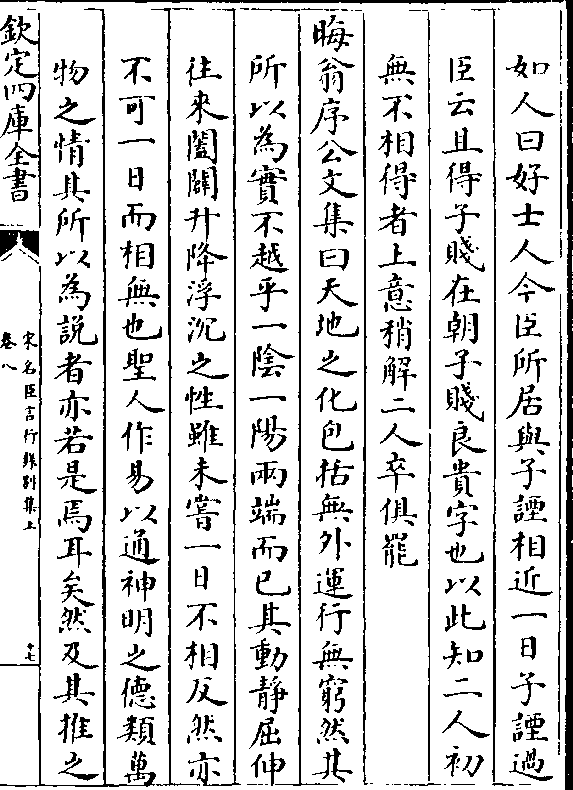 如人曰好士人今臣所居與子諲相近一日子諲過
臣云且得子賤在朝子賤良貴字也以此知二人初
無不相得者上意稍解二人卒俱罷
晦翁序公文集曰天地之化包括無外運行無窮然其
所以為實不越乎一陰一陽兩端而已其動靜屈伸
往來闔闢升降浮沉之性雖未嘗一日不相反然亦
不可一日而相無也聖人作易以通神明之德類萬
物之情其所以為説者亦若是焉耳矣然及其推之
欽定四庫全書
宋名臣言行録别集上
卷八
十七